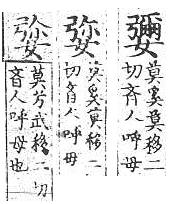 𡞞莫奚莫移二
切齊人呼母
莫奚莫移二
切齊人呼母
莫兮武移二切
齊人呼母也